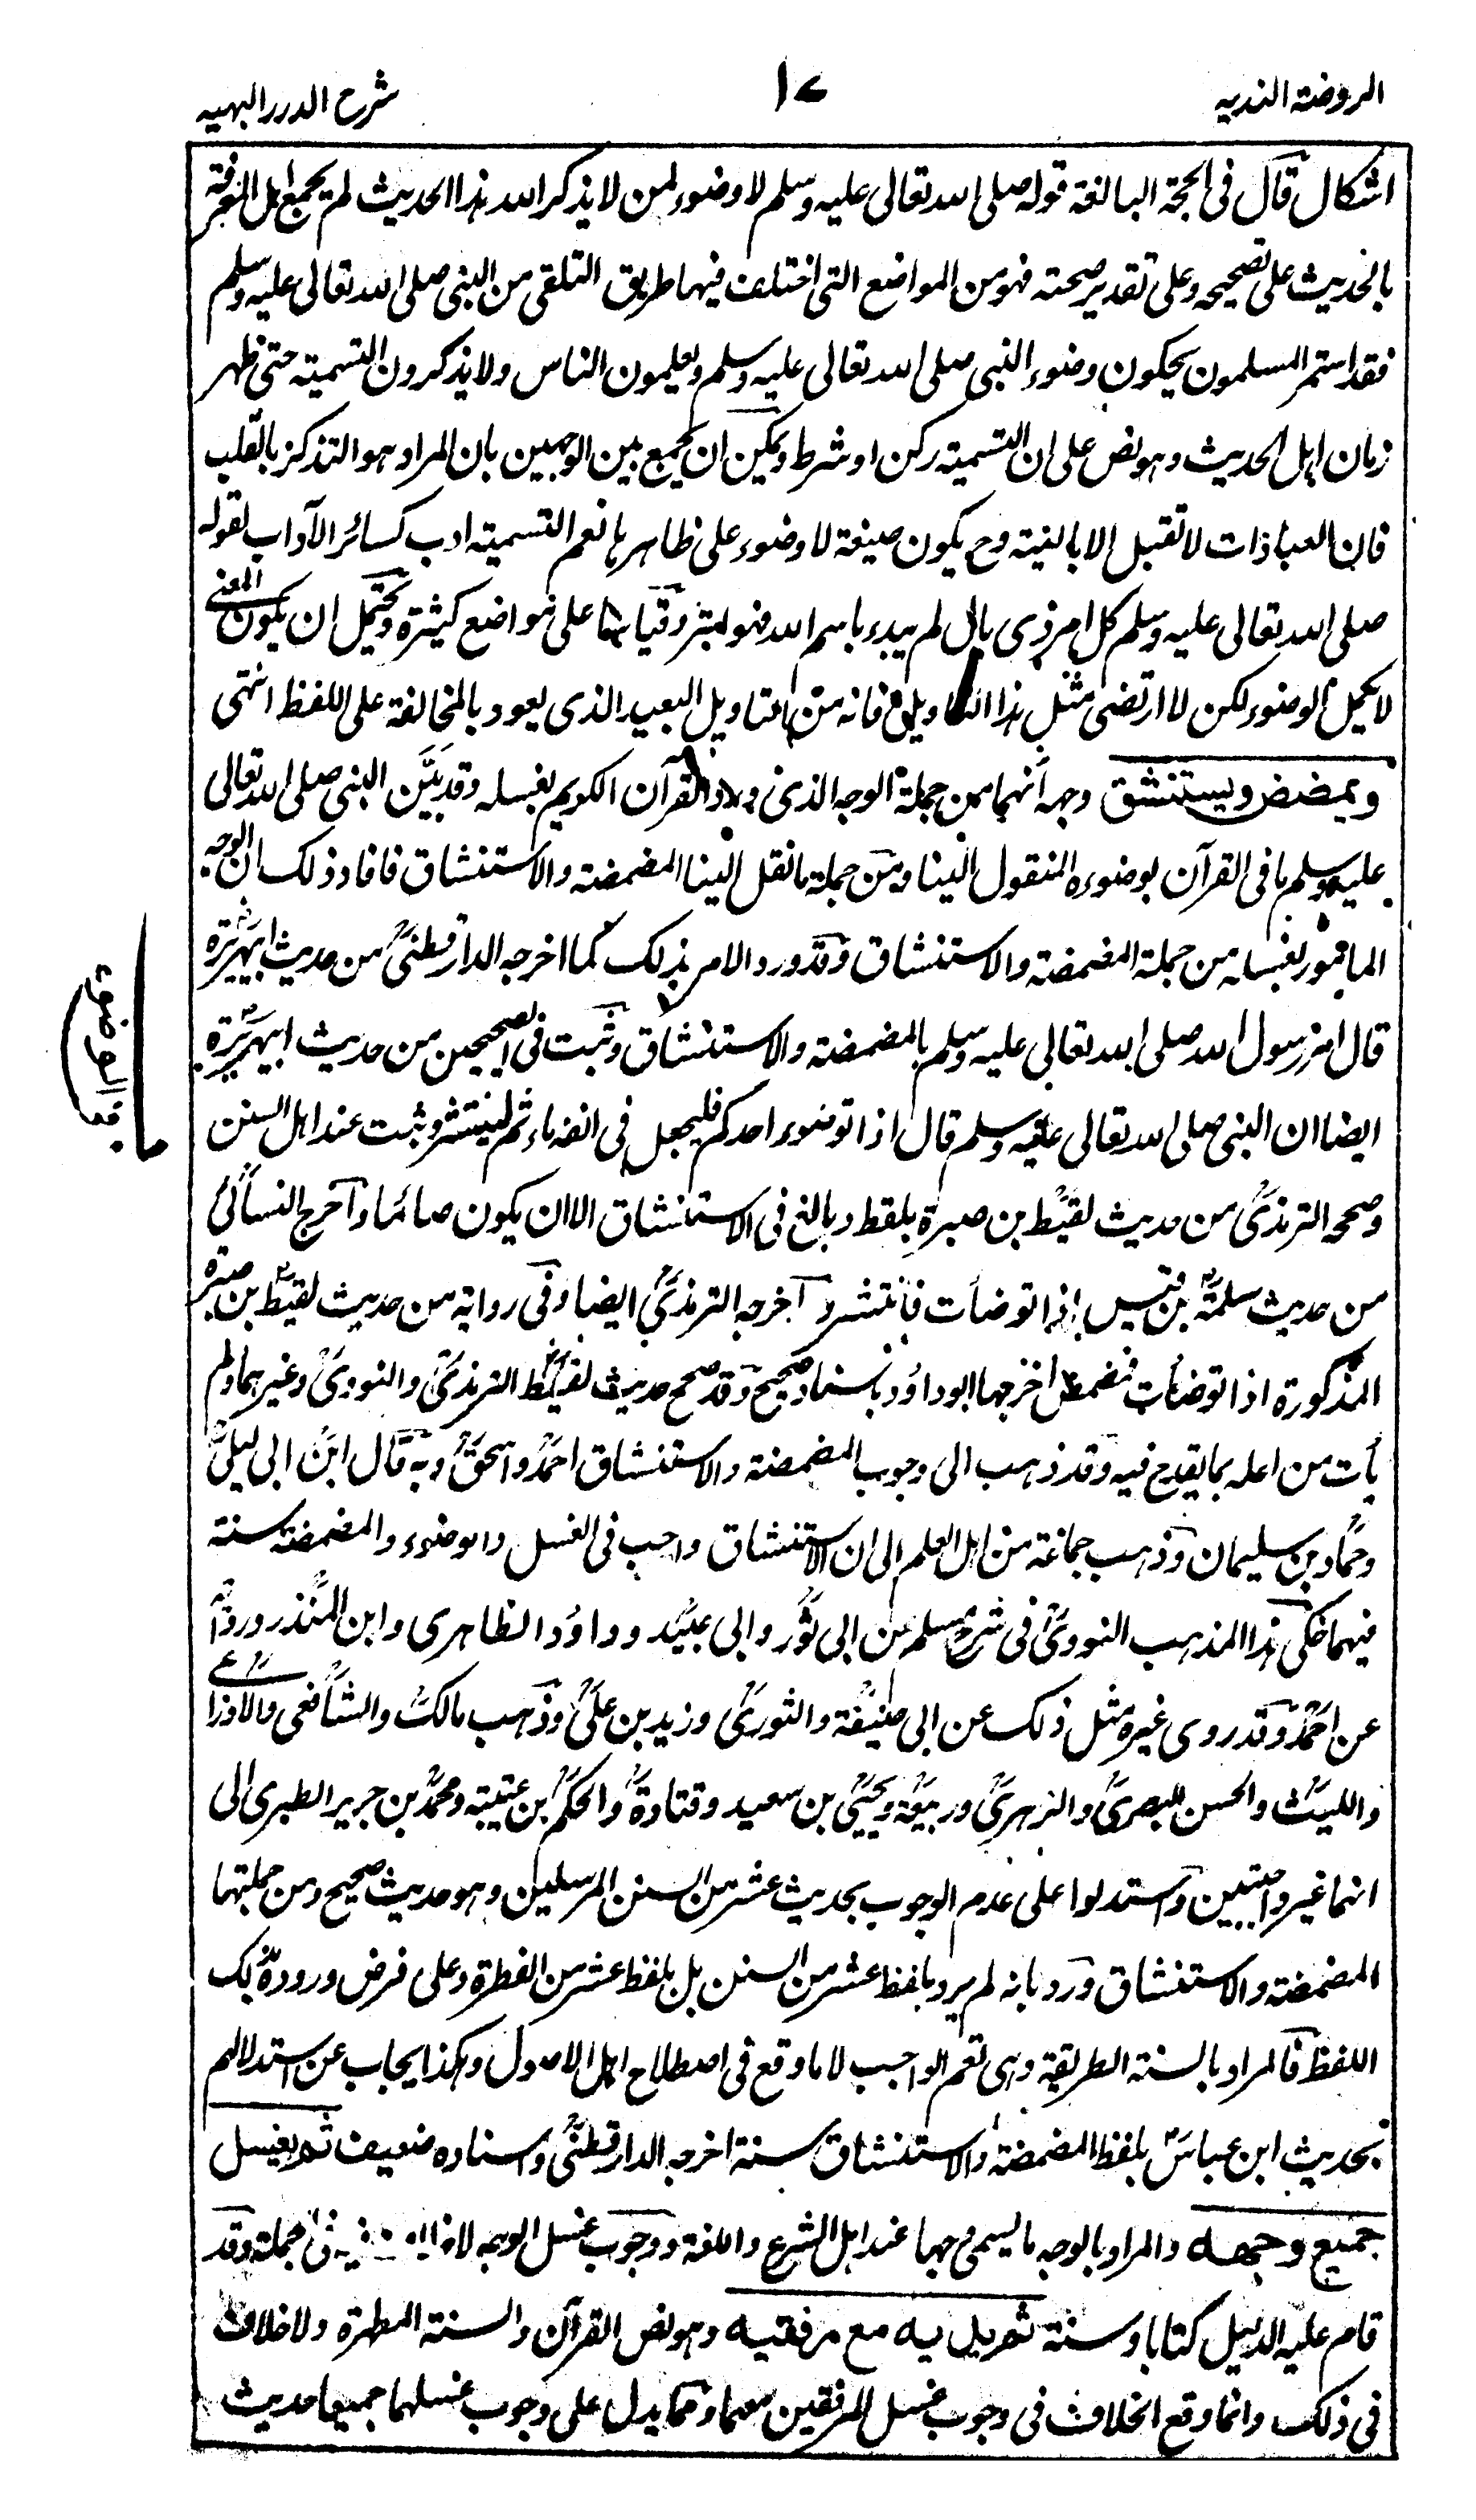 الروضة الندیه
۱۷
شرح الدرر البهیه
اشکال قال فی الحجة البالغة قوله صلی الله تعالی علیه وسلم لا وضوء لمن لا یذکر الله هذا الحدیث لم یجمع اهل المعرفة
بالحدیث علی تصحیحه وعلی تقدیر صحته فهو من المواضع التی اختلف فیها طریق التلقی من النبی صلی الله تعالی علیه وسلم
فقد استمر المسلمون یحکون وضوء النبی صلی الله تعالی علیه وسلم ویعلمون الناس ولا یذکرون التسمیة حتی ظهر
زمان اهل الحدیث وهو نص علی ان التسمیة رکن او شرط ویمکن ان یجمع بین الوجهین بان المراد هو التذکر بالقلب
فان العبادات لا تقبل الا بالنیة وح یکون صیغة لا وضوء علی ظاهرها نعم التسمیة ادب کسائر الآداب لقوله
صلی الله تعالی علیه وسلم کل امر ذی بال لم یبدء باسم الله فهو ابتر وقیاسا علی مواضع کثیرة ویحتمل ان یکون المعنی
لا یکمل الوضوء لکن لا ارتضی مثل هذا التاویل فانه من التاویل البعید الذی یعود بالمخالفة علی اللفظ انتهی
ویمضمض ویستنشق وجهه أنهما من جملة الوجه الذی ورد القرآن الکریم بغسله وقد بَیَّن النبی صلی الله تعالی
علیه وسلم ما فی القرآن بوضوءه المنقول الینا ومن جملة ما نقل الینا المضمضة والاستنشاق فافاد ذلک ان الوجه
المامور بغسله من جملة المضمضة والاستنشاق وقد ورد الامر بذلک کما اخرجه الدارقطنی من حدیث ابی هریرة
قال امر رسول الله صلی الله تعالی علیه وسلم بالمضمضة والاستنشاق وثبت فی الصحیحین من حدیث ابی هریرة
ایضا ان النبی صلی الله تعالی علیه وسلم قال اذا توضوء احدکم فلیجعل فی انفه ماء ثم لینتثر وثبت عند اهل السنن
وصححه الترمذی من حدیث لقیط بن صبرة بلفظ وبالغ فی الاستنشاق الا ان یکون صائما واخرج النسائی
من حدیث سلمة بن قیس اذا توضأت فانتثر واخرجه الترمذی ایضا وفی روایة من حدیث لقیط بن صبرة
المذکورة اذا توضأت فمضمض اخرجها ابو داؤد باسناد صحیح وقد صحح حدیث لقیط الترمذی والنووی وغیرهما ولم
یأت من اعله بما یقدح فیه وقد ذهب الی وجوب المضمضة والاستنشاق احمد واسحق وبه قال ابن ابی لیلی
وحماد بن سلیمان وذهب جماعة من اهل العلم الی ان الاستنشاق واجب فی الغسل والوضوء والمضمضة سنة
فیهما حکی هذا المذهب النووی فی شرح مسلم عن ابی ثور وابی عبید وداؤد الظاهری وابن المنذر وروایة
عن احمد وقد روی غیره مثل ذلک عن ابی حنیفة والثوری وزید بن علی وذهب مالک والشافعی والاوزاعی
واللیث والحسن البصری والزهری وربیعة ویحیی بن سعید وقتادة والحکم بن عتیبة ومحمد بن جریر الطبری الی
انهما غیر واجبتین واستدلوا علی عدم الوجوب بحدیث عشر من السنن المرسلین وهو حدیث صحیح ومن جملتها
المضمضة والاستنشاق ورد بانه لم یرد بلفظ عشر من السنن بل بلفظ عشر من الفطرة وعلی فرض وروده بذلک
اللفظ فالمراد بالسنة الطریقة وهی تعم الواجب لا ما وقع فی اصطلاح اهل الاصول وهکذا یجاب عن استدلالهم
بحدیث ابن عباس بلفظ المضمضة والاستنشاق سنة اخرجه الدارقطنی واسناده ضعیف ثم یغسل
جمیع وجهه والمراد بالوجه ما یسمی وجها عند اهل الشرع واللغة ووجوب غسل الوجه لا خلاف فیه فی الجملة وقد
قام علیه الدلیل کتابا وسنة ثم یدیه مع مرفقیه وهو نص القرآن والسنة المطهرة ولا خلاف
فی ذلک وانما وقع الخلاف فی وجوب غسل المرفقین معهما ومما یدل علی وجوب غسلهما جمیعا حدیث